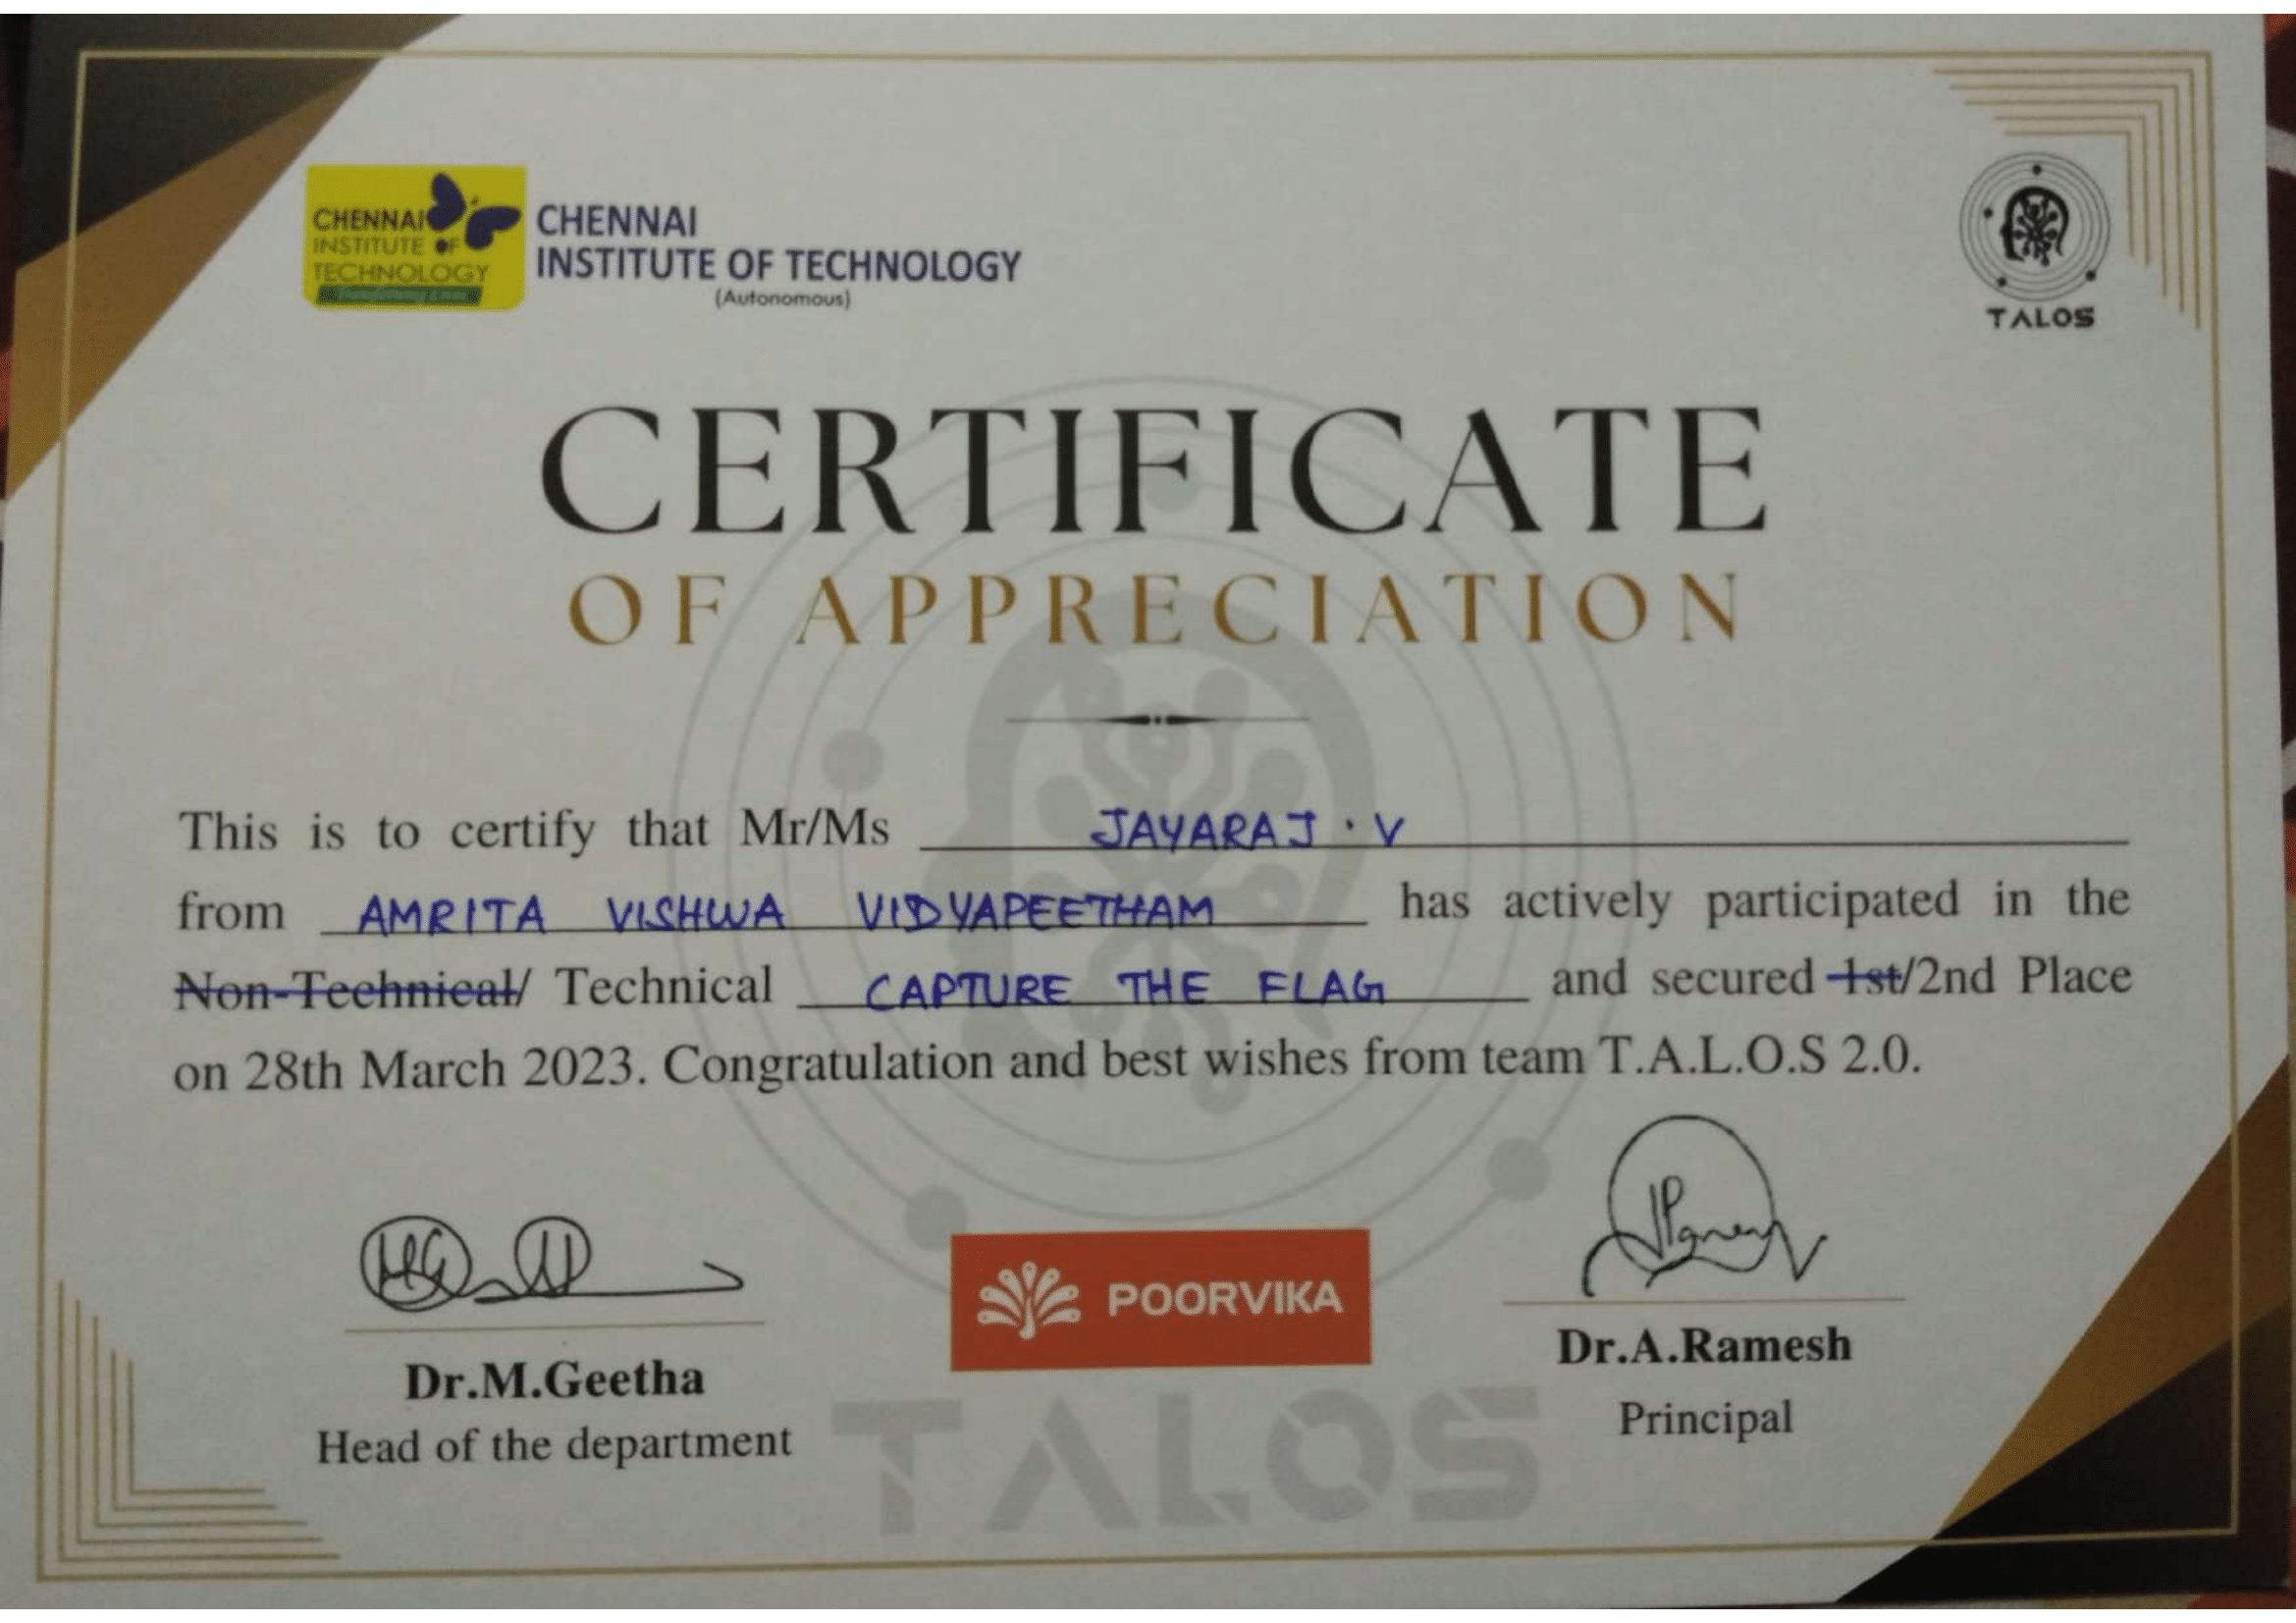 CHENNAI
INSTITUTE OF
TECHNOLOGY
CHENNAI
INSTITUTE OF TECHNOLOGY
(Autonomous)
TALOS
CERTIFICATE
OF APPRECIATION
This is to certify that Mr/Ms JAYARAJ . V
from AMRITA VISHWA VIDYAPEETHAM has actively participated in the
Non-Technical/ Technical CAPTURE THE FLAG and secured 1st/2nd Place
on 28th March 2023. Congratulation and best wishes from team T.A.L.O.S 2.0.
POORVIKA
Dr.M.Geetha
Head of the department
Dr.A.Ramesh
Principal
TALOS